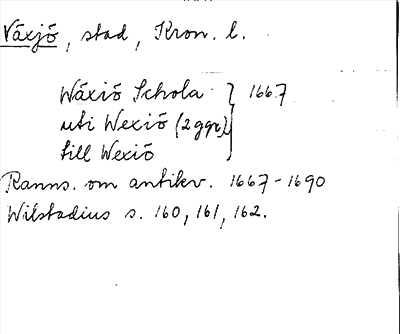 Växjö, stad, Kron. l.
Wäxiö Schola } 1667
uti Wexiö (2 ggr)
till Wexiö
Ranns. om antikv. 1667-1690
Wilstadius s. 160, 161, 162.